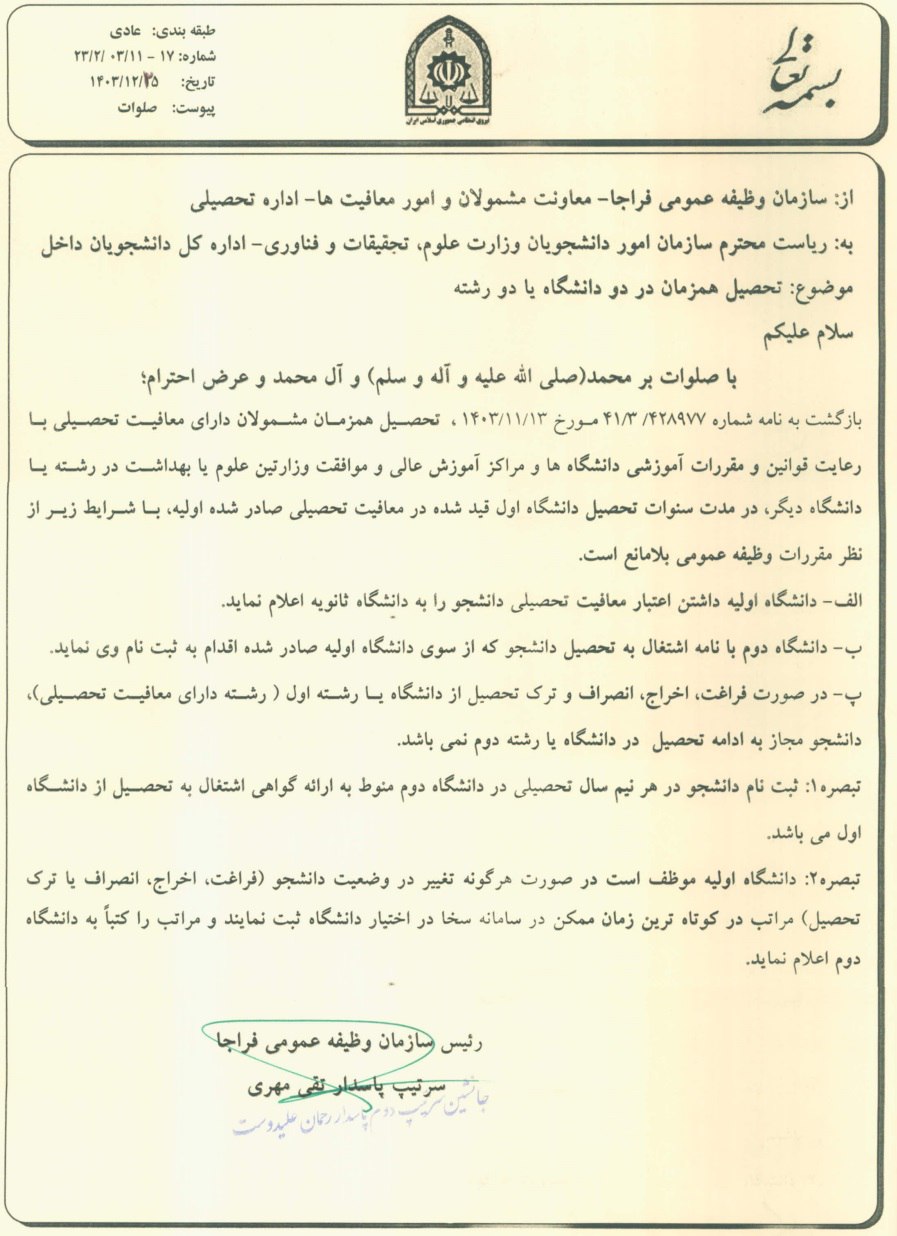 بسمه تعالی
نیروی انتظامی جمهوری اسلامی ایران
طبقه بندی: عادی
شماره: ۱۷ - ۰۳/۱۱ /۲۳/۲
تاریخ: ۱۴۰۳/۱۲/۲۵
پیوست: صلوات
از: سازمان وظیفه عمومی فراجا- معاونت مشمولان و امور معافیت ها- اداره تحصیلی
به: ریاست محترم سازمان امور دانشجویان وزارت علوم، تحقیقات و فناوری- اداره کل دانشجویان داخل
موضوع: تحصیل همزمان در دو دانشگاه یا دو رشته
سلام علیکم
با صلوات بر محمد(صلی الله علیه و آله و سلم) و آل محمد و عرض احترام؛
بازگشت به نامه شماره ۴۱/۳ /۴۲۸۹۷۷ مورخ ۱۴۰۳/۱۱/۱۳ ، تحصیل همزمان مشمولان دارای معافیت تحصیلی با
رعایت قوانین و مقررات آموزشی دانشگاه ها و مراکز آموزش عالی و موافقت وزارتین علوم یا بهداشت در رشته یا
دانشگاه دیگر، در مدت سنوات تحصیل دانشگاه اول قید شده در معافیت تحصیلی صادر شده اولیه، با شرایط زیر از
نظر مقررات وظیفه عمومی بلامانع است.
الف- دانشگاه اولیه داشتن اعتبار معافیت تحصیلی دانشجو را به دانشگاه ثانویه اعلام نماید.
ب- دانشگاه دوم با نامه اشتغال به تحصیل دانشجو که از سوی دانشگاه اولیه صادر شده اقدام به ثبت نام وی نماید.
پ- در صورت فراغت، اخراج، انصراف و ترک تحصیل از دانشگاه یا رشته اول ( رشته دارای معافیت تحصیلی)،
دانشجو مجاز به ادامه تحصیل در دانشگاه یا رشته دوم نمی باشد.
تبصره۱: ثبت نام دانشجو در هر نیم سال تحصیلی در دانشگاه دوم منوط به ارائه گواهی اشتغال به تحصیل از دانشگاه
اول می باشد.
تبصره۲: دانشگاه اولیه موظف است در صورت هرگونه تغییر در وضعیت دانشجو (فراغت، اخراج، انصراف یا ترک
تحصیل) مراتب در کوتاه ترین زمان ممکن در سامانه سخا در اختیار دانشگاه ثبت نمایند و مراتب را کتباً به دانشگاه
دوم اعلام نماید.
رئیس سازمان وظیفه عمومی فراجا
سرتیپ پاسدار تقی مهری
جانشین سرتیپ دوم پاسدار رحمان علیدوست